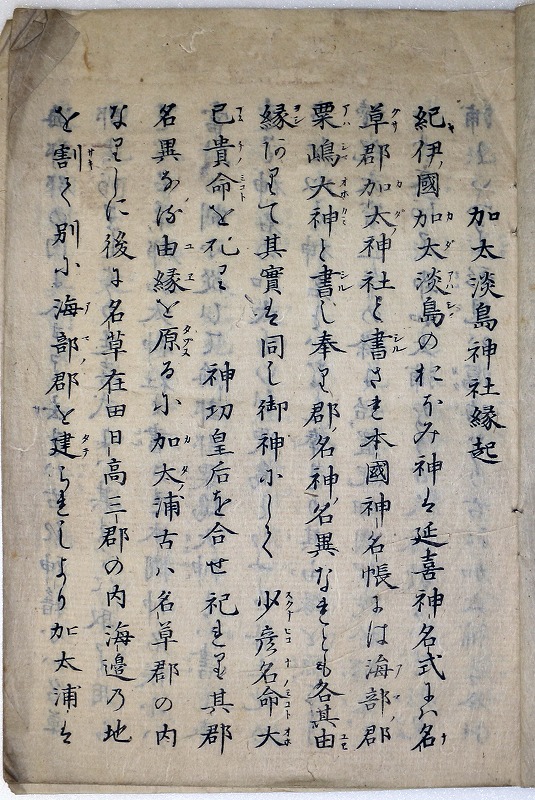 加太淡島神社縁起
紀伊國加太淡島のおほみ神は延喜神名式には名
草郡加太神社と書され本國神名帳には海部郡
粟嶋大神と書し奉り郡名神名異なれとも各其由
縁ありて其實は同し御神にして 少彦名命大
已貴命を祀り 神功皇后を合せ祀れり其郡
名異なる由縁を原るに加太浦古ハ名草郡の内
なりしに後に名草在田日高三郡の内海邊乃地
を割て別に海部郡を建られしより加太浦は